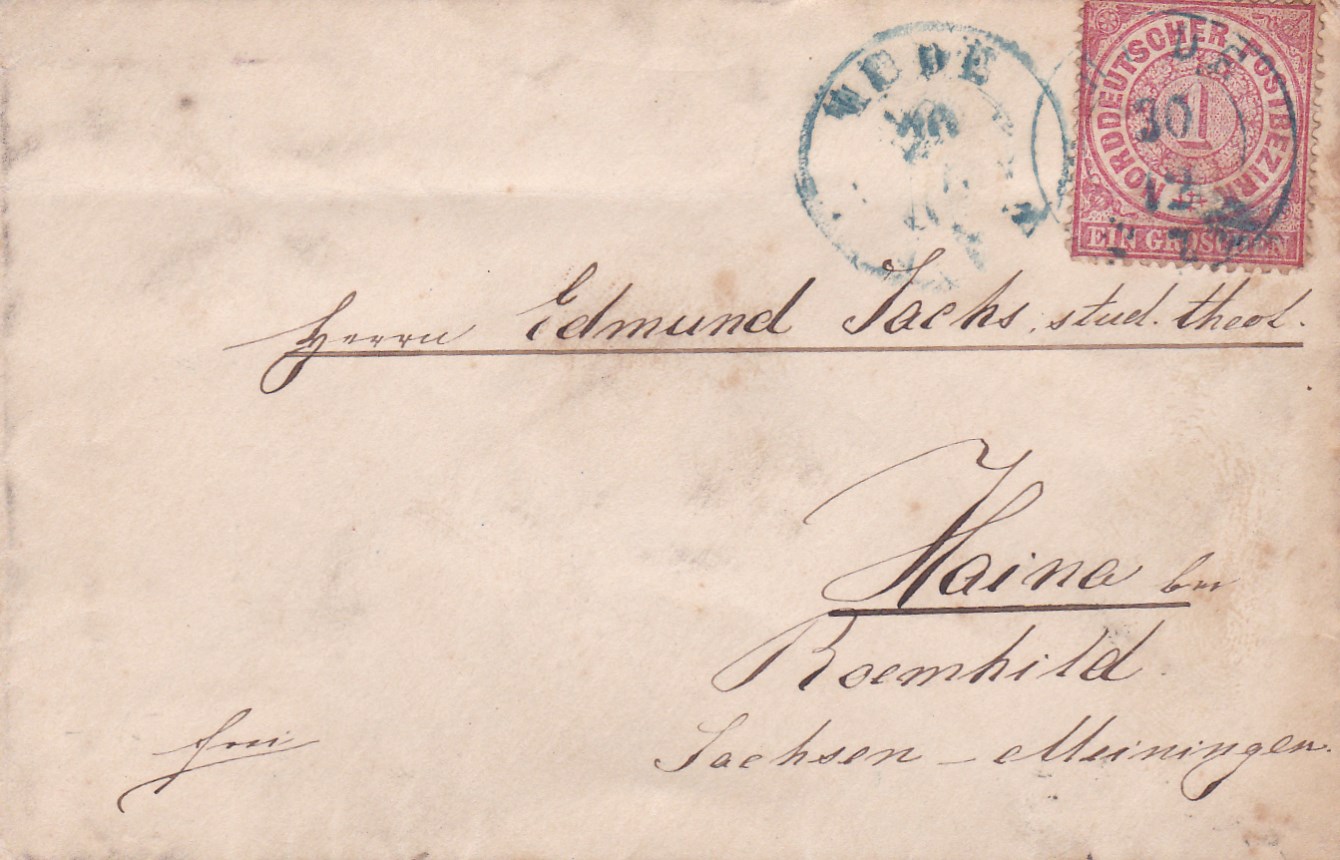 NORDDEUTSCHER POSTBEZIRK
1
EIN GROSCHEN
30
12
Herrn Edmund Sachs, stud. theol.
Haina bei
Roemhild.
Sachsen - Meiningen.
frei